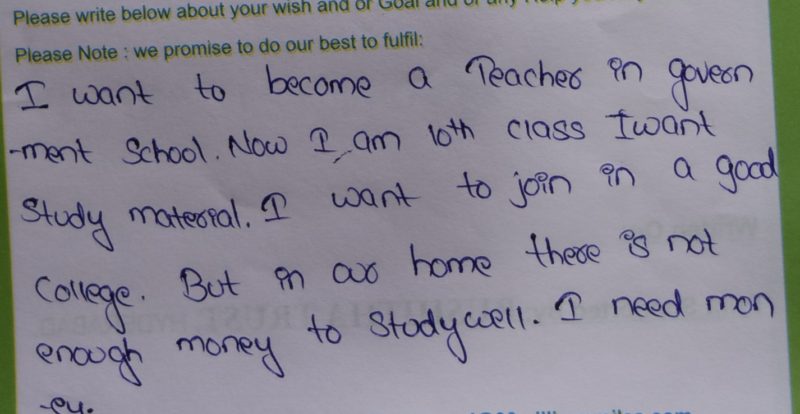 Please write below about your wish and or Goal and or any Help you
Please Note : we promise to do our best to fulfil:
I want to become a Teacher in govern
-ment School. Now I am 10th class I want
Study material. I want to join in a good
College. But in our home there is not
enough money to study well. I need mon
-ey.